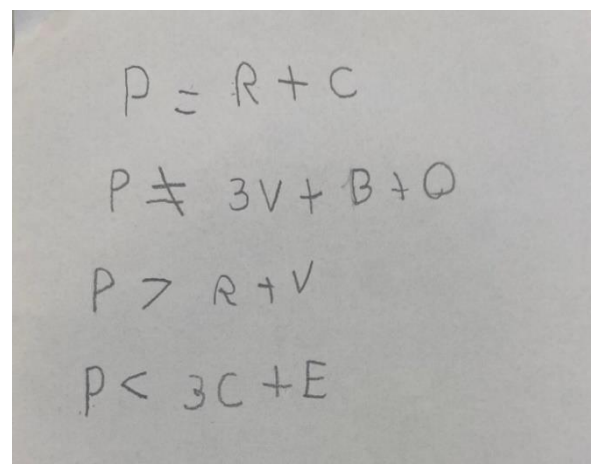 P = R + C
P ≠ 3V + B + O
P > R + V
P < 3C + E